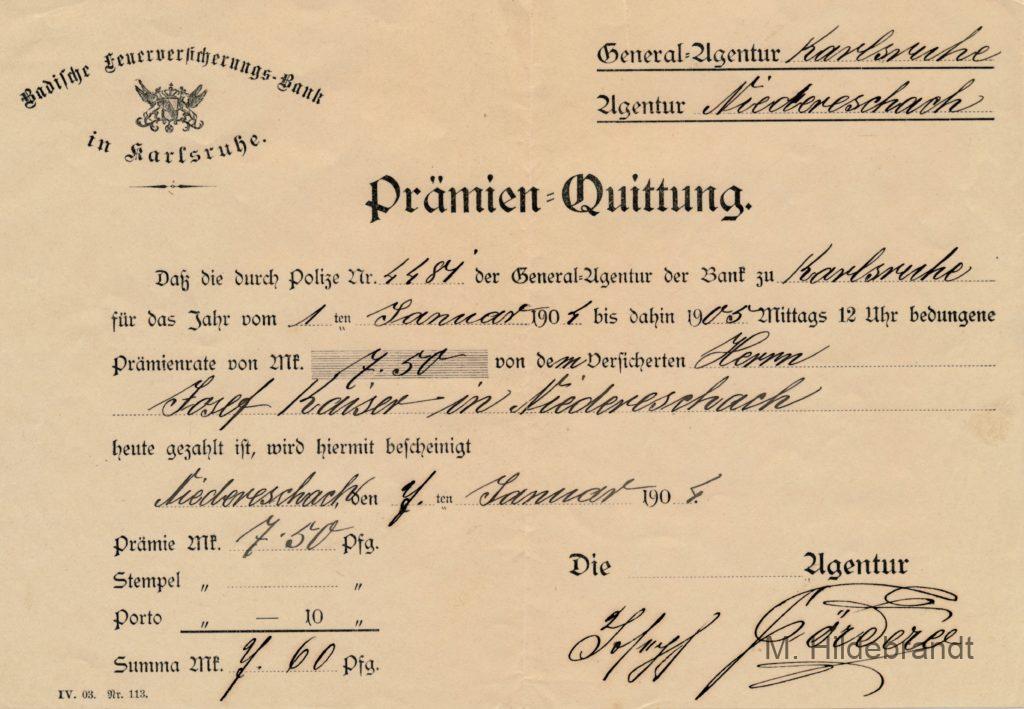 Badische Feuerversicherungs-Bank
in Karlsruhe.
General-Agentur Karlsruhe
Agentur Niedereschach
Prämien-Quittung.
Daß die durch Polize Nr. 4481 der General-Agentur der Bank zu Karlsruhe
für das Jahr vom 1 ten Januar 1904 bis dahin 1905 Mittags 12 Uhr bedungene
Prämienrate von Mk. 7.50 von dem Versicherten Herrn
Josef Kaiser in Niedereschach
heute gezahlt ist, wird hiermit bescheinigt
Niedereschach, den 7. ten Januar 1904.
Prämie Mk. 7.50 Pfg.
Stempel „ „
Porto „ — 10 „
Summa Mk. 7. 60 Pfg.
Die Agentur
Joseph
M. Hildebrandt
IV. 03. Nr. 113.